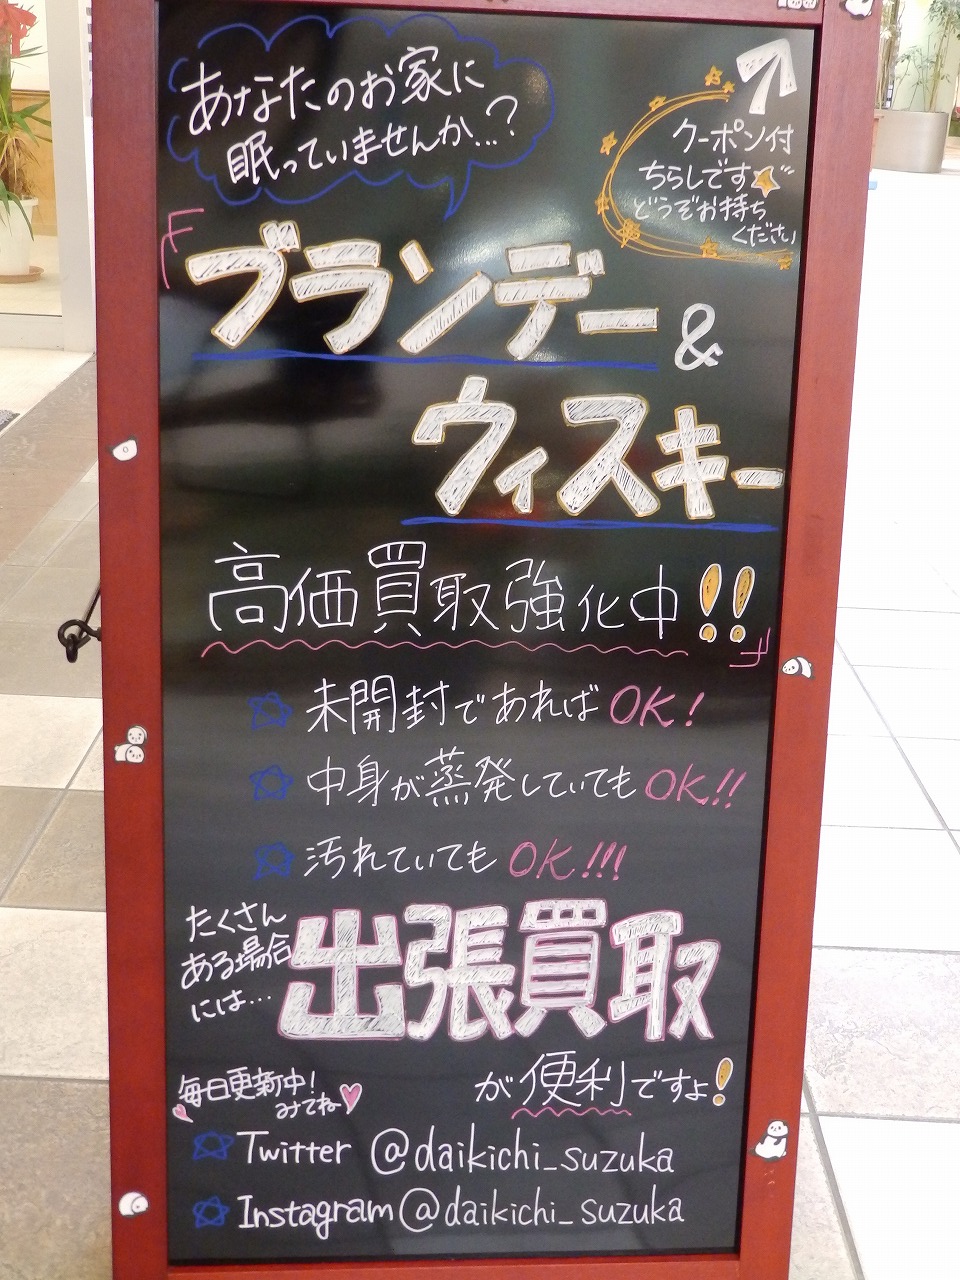 あなたのお家に
眠っていませんか…?
クーポン付
ちらしです
どうぞお持ち
ください
『ブランデー &
ウィスキー
高価買取強化中!!』
未開封であれば OK!
中身が蒸発していても OK!!
汚れていても OK!!!
たくさん
ある場合
には…
出張買取
が便利ですよ!
毎日更新中!
みてね
Twitter @daikichi_suzuka
Instagram@daikichi_suzuka